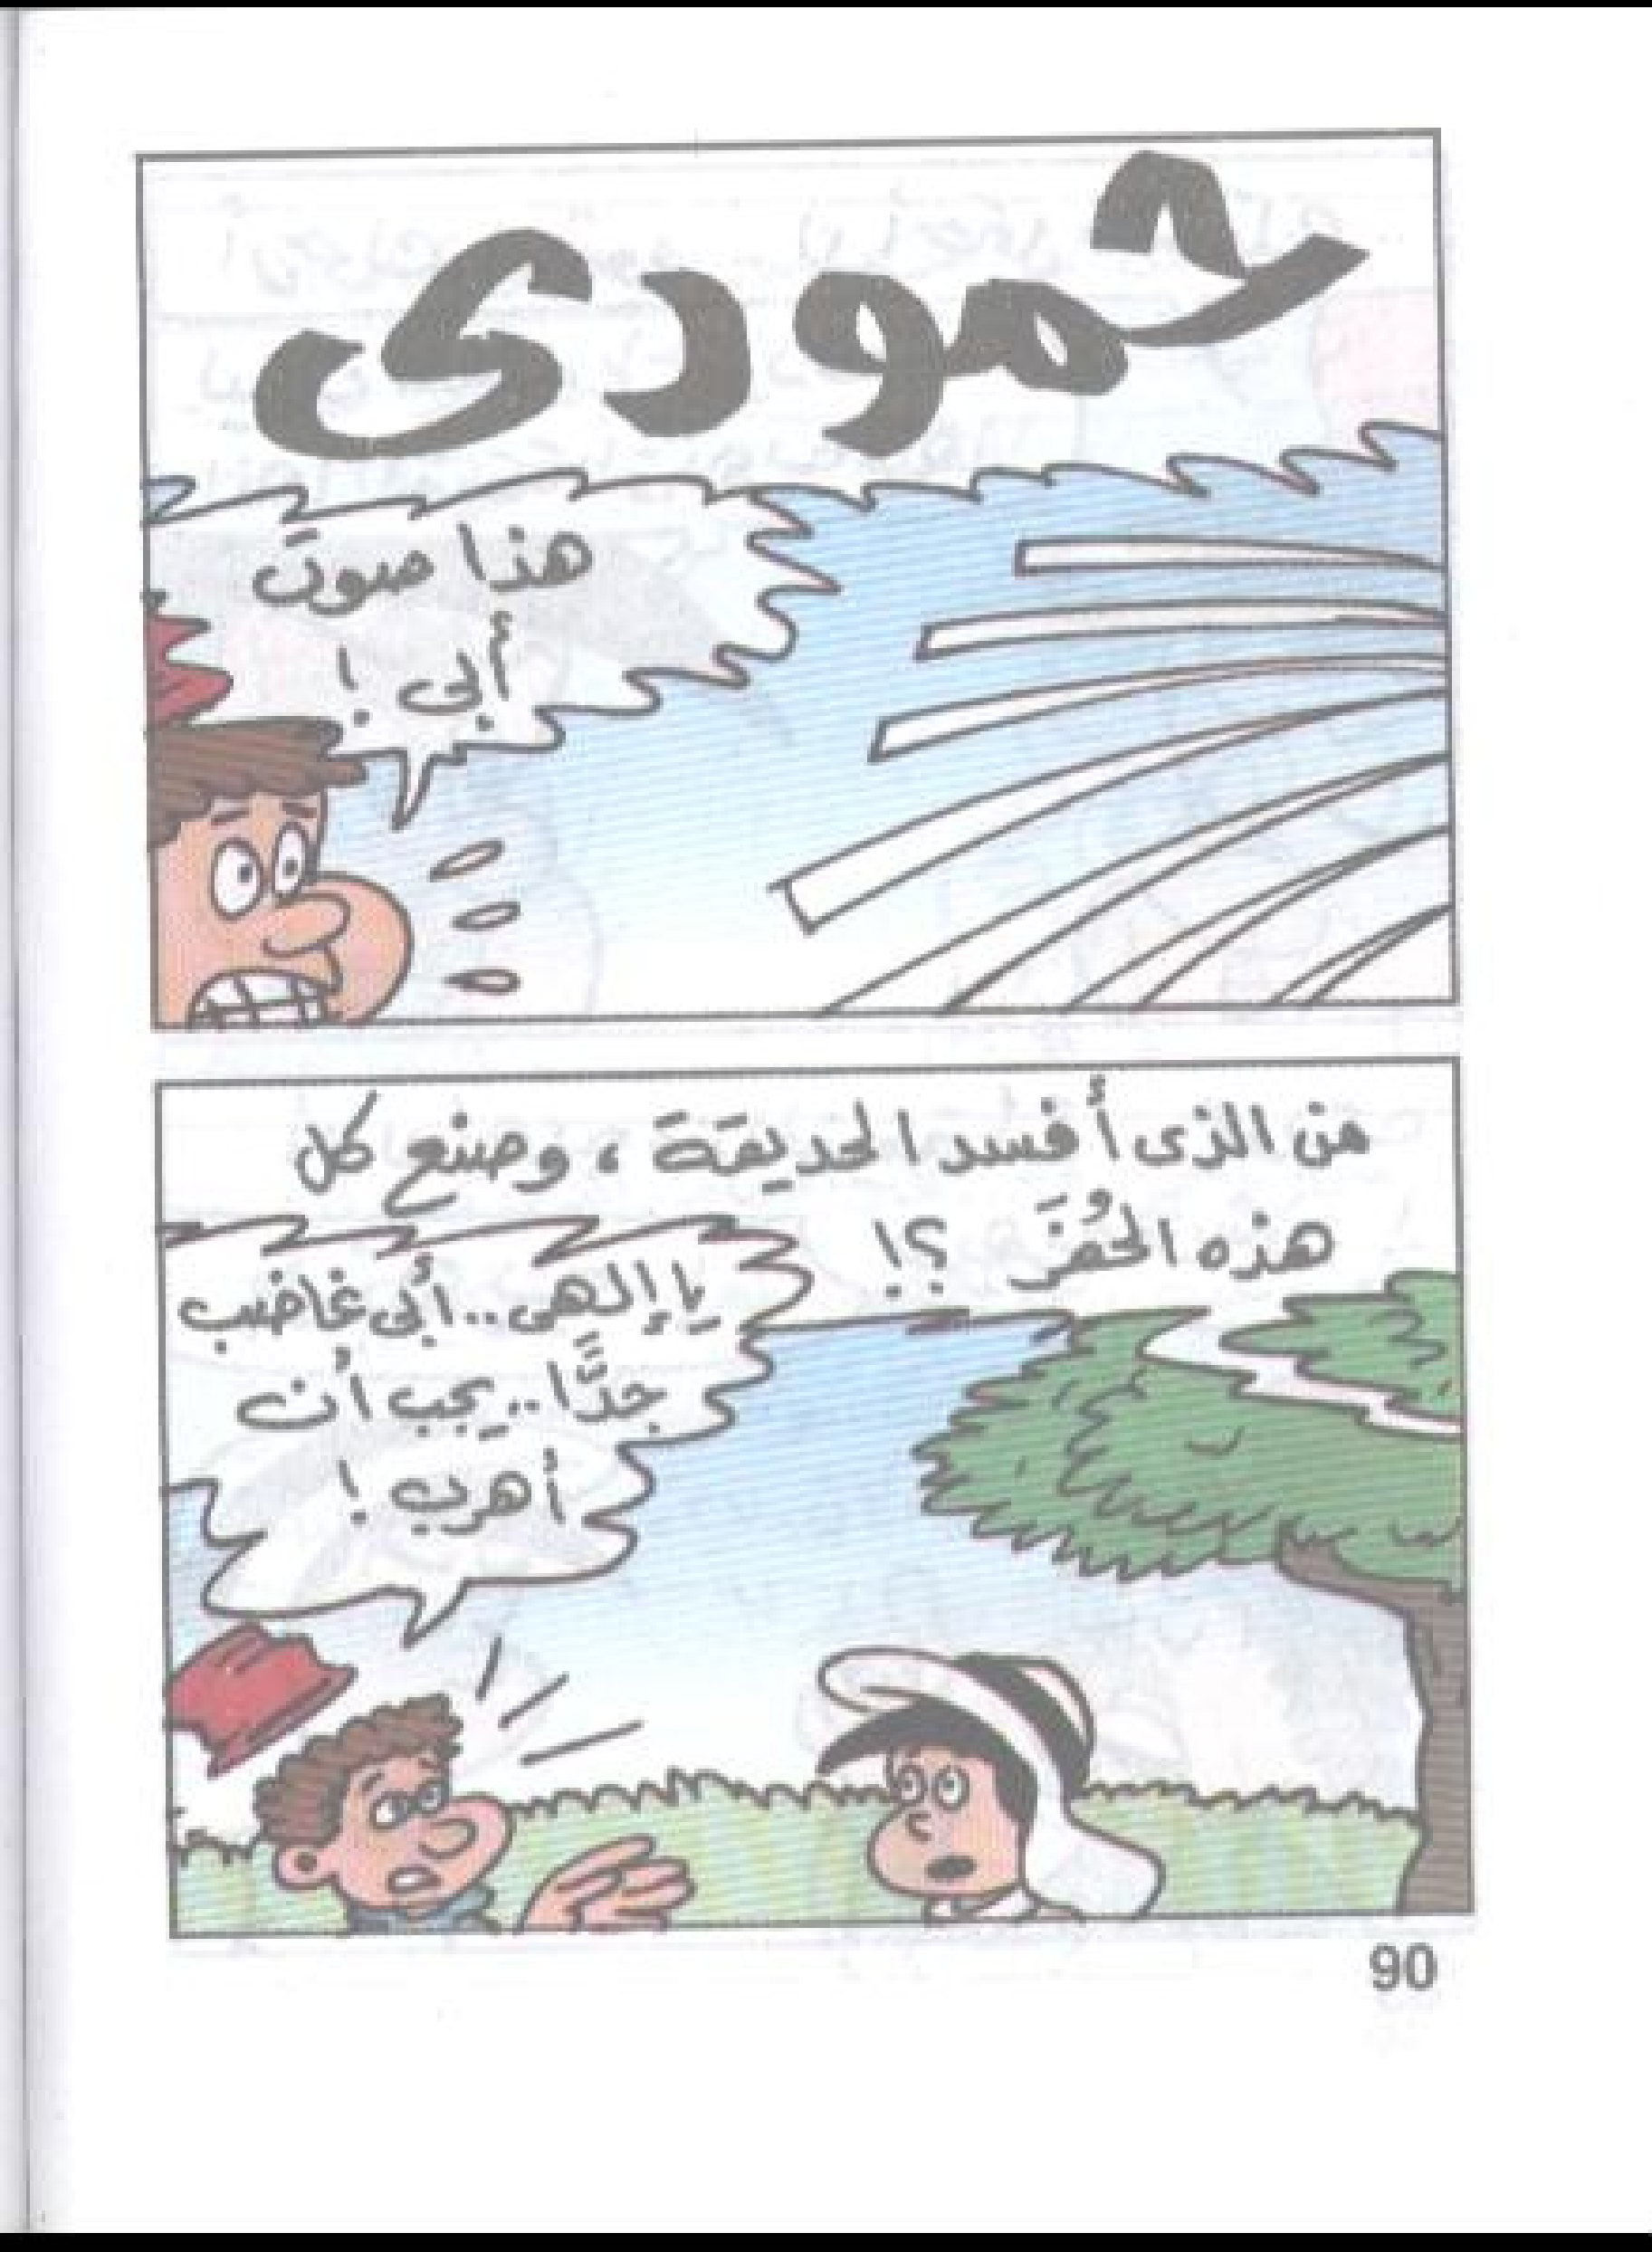 حمودى
هذا صوت
أبى !
من الذى أفسد الحديقة ، وصنع كل
هذه الحُفَر ؟!
يا إلهى .. أبى غاضب
جدًّا .. يجب أن
أهرب !
90